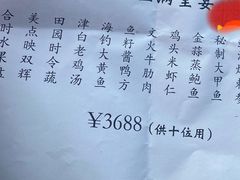 秘制大甲鱼
金蒜蒸鲍鱼
鸡头米虾仁
文火牛肋肉
鱼籽酱鸭方
海钓大黄鱼
津白老鸡汤
田园时令蔬
美点映双辉
合时水果
¥3688(供十位用)